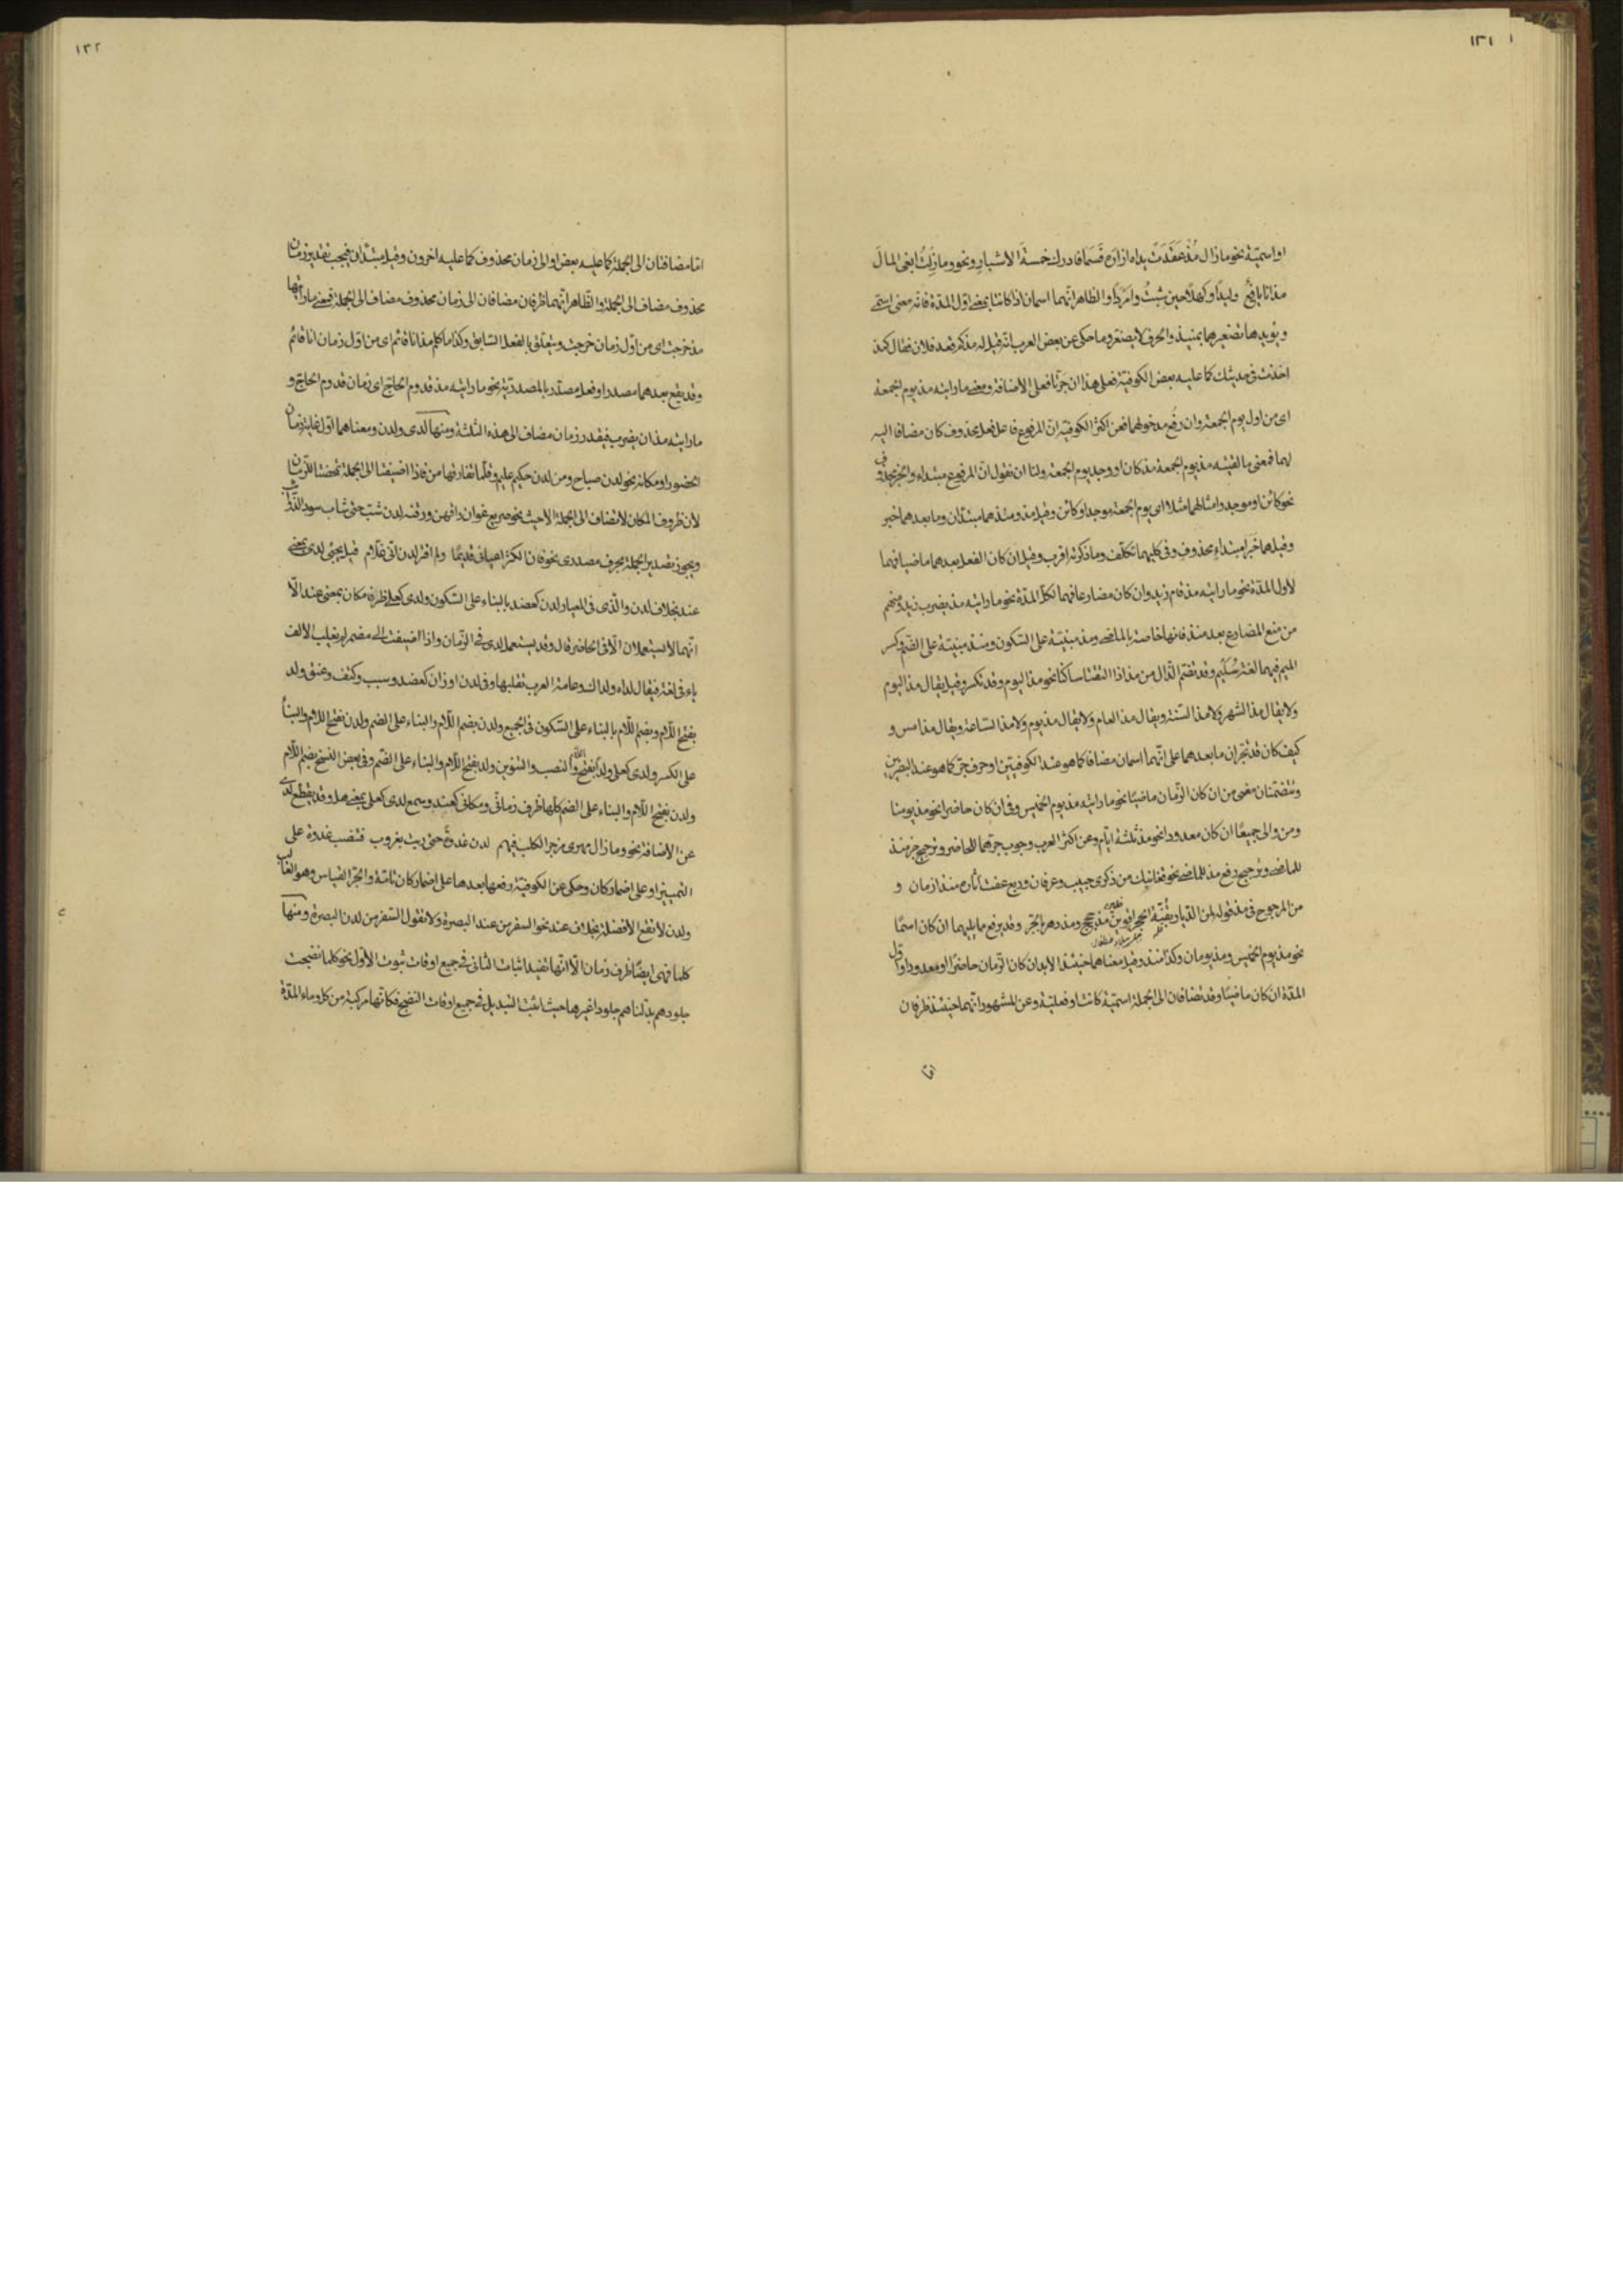 ١٣١
او اسمّية نحو ما زال مُذ عَقَدَت يداه ازاره فَسَمَا فادرك خمسةَ الاشبار ونحو وما زِلتُ ابغى المالَ
مذ انا يافعٌ وليدًا وكهلًا حين شبتُ وامردا والظاهر انّهما اسمان اذا كانتا بمعنى اوّل المدّة فانّه معنى اسمى
ويؤيدها تصغيرهما بمنيذ والحرف لا يصغر وما حكى عن بعض العرب انّه قيل له مذكم قعد فلان فقال كمذ
اخذت فى حديثك كما عليه بعض الكوفيّة فعلى هذا ان جرّتا فعلى الاضافة ومعنى ما رايته مذ يوم الجمعة
اى من اول يوم الجمعة وان رفع مدخولهما فعن اكثر الكوفية ان المرفوع فاعل فعل محذوف كان مضافا اليه
لهما فمعنى ما لقيته مذ يوم الجمعة مذ كان او وجد يوم الجمعة ولنا ان نقول انّ المرفوع مبتداء والخبر محذوف
نحو كائن او موجد وامثالهما مثلا اى يوم الجمعة موجد او كائن وقيل مذ ومنذ هما مبتدان وما بعدهما خبر
وقيل هما خبرا مبتداء محذوف وفى كليهما تكلّف وما ذكرته اقرب وقيل ان كان الفعل بعدهما ماضيا فهما
لاول المدّة نحو ما رايته مذ قام زيد وان كان مضارعا فهما لكلّ المدّة نحو ما رايته مذ يضرب زيد ومنهم
من منع المضارع بعد منذ فانها خاصة بالماضى ومذ مبنيّة على السّكون ومنذ مبنيّة على الضّم وكسر
الميم فيهما لغة سُلَيم وقد تضمّ الذّال من مذ اذا التقتا ساكنا نحو مذ اليوم وقد تكسر وقيل يقال مذ اليوم
ولا يقال مذ الشهر ولا مذ السّنة ويقال مذ العام ولا يقال مذ يوم ولا مذ السّاعة ويقال مذ امس و
كيف كان قد تجران ما بعدهما على انّهما اسمان مضافا كما هو عند الكوفيّين او حرف جرّ كما هو عند البصريّين
وتتضمّنان معنى من ان كان الزّمان ماضيًا نحو ما رايته مذ يوم الخميس وفى ان كان حاضرا نحو مذ يومنا
ومن والى جميعًا ان كان معدودا نحو مذ ثلثة ايّام وعن اكثر العرب وجوب جرّهما للحاضر وترجيح جر منذ
للماضى وترجيح رفع مذ للماضى نحو قفانبك من ذكرى حبيب وعرفان وربع عفت آثاره منذ ازمان و
من المرجوح فى مذ قوله لمن الدّيار بقُنّة الحجر اقوين مذ حجج ومذ دهر بالجر وقد يرفع ما يليهما ان كان اسمًا
نحو مذ يوم الخميس ومذ يومان وكذا منذ وقيل معناهما حينئذ الابد ان كان الزّمان حاضرًا او معدودا واوّل
المدّة ان كان ماضيًا وقد تضافان الى الجملة اسميّة كانتا او فعليّة وعن المشهور انّهما حينئذ ظرفان
امّا
١٣٢
امّا مضافتان الى الجملة كما عليه بعض او الى زمان محذوف كما عليه اخرون وقيل مبتدان فيجب تقدير زمان
محذوف مضاف الى الجملة والظاهر انّهما ظرفان مضافان الى زمان محذوف مضاف الى الجملة فمعنى ما رايتها
مذ خرجت اى من اوّل زمان خرجت ويتعلّق بالفعل السّابق وكذا ما كلم مذ انا قائم اى من اوّل زمان انا قائم
وقد يقع بعدهما مصدرا او فعل مصدّر بالمصدريّة نحو ما رايته مذ قدوم الحاج اى زمان قدوم الحاجّ و
ما رايته مذ ان يضرب فيقدر زمان مضاف الى هذه الثلثة ومنها لدى ولدن ومعناهما اوّل غاية زمان
الحضور او مكانه نحو لدن صباح ومن لدن حكيم عليم وقلّما تفارقها من فاذا اضيفتا الى الجملة تمحّضتا للزّمان
لان ظروف المكان لا تضاف الى الجملة الا حيث نحو صريع غوان راقهن ورقنه لدن شبّ حتى شاب سود الذّوائب
ويجوز تصدير الجملة بحرف مصدرى نحو فان الكثر اعيانى قديمًا ولم اقتر لدن انى غلام قيل يجئ لدى بمعنى
عند بخلاف لدن والّذى فى المعيار لدن كعضد بالبناء على السّكون ولدى كعلى ظرف مكان بمعنى عند الّا
انّهما لا يستعملان الّا فى الحاضر قال وقد يستعمل لدى فى الزّمان واذا اضيفت الى مضمر لم يقلب الالف
ياء فى لغة فيقال لداه ولداك وعامة العرب تقلبها وفى لدن اوزان كعضد وسبب وكتف وعنق ولد
بفتح اللّام وبضم اللّام بالبناء على السّكون فى الجميع ولدن بضم اللّام والبناء على الضم ولدن بفتح اللام والبناء
على الكسر ولدى كعلى ولدًا بفتح اللام والنصب والتنوين ولد بفتح اللّام والبناء على الضّم وفى بعض النسخ بضم اللّام
ولدن بفتح اللّام والبناء على الضم كلّها ظرف زمانىّ ومكانى كعند وسمع لدى كعلى بمعنى هل وقد يقطع لدى
عن الاضافة نحو وما زال مهرى مزجر الكلب فيهم لدن غدوةً حتى دنت بغروب فتنصب غدوة على
التميييز او على اضمار كان وحكى عن الكوفيّة رفعها بعدها على اضمار كان تامّة والجرّ القياس وهو الغالب
ولدن لا تقع الا فضلة بخلاف عند نحو السفر من عند البصرة ولا تقول السّفر من لدن البصرة ومنها
كلما فهى ايضًا ظرف زمان الّا انّها تفيد اثبات الثانى فى جميع اوقات ثبوت الاوّل نحو كلما نضجت
جلودهم بدّلناهم جلودا غيرها حيث اثبت التبديل فى جميع اوقات النضج فكانّها مركبة من كل وماء المدّة